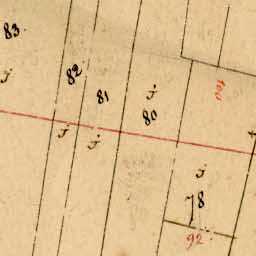 83.
j
82
81
j
80
100
j
j
j
78
92.